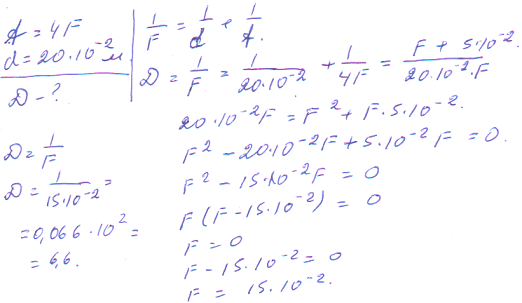 f = 4F
d = 20·10⁻² м.
D - ?
1/F = 1/d + 1/f.
D = 1/F = 1/20·10⁻² + 1/4F = F + 5·10⁻²/20·10⁻²·F
20·10⁻²F = F² + F·5·10⁻².
F² - 20·10⁻²F + 5·10⁻²F = 0.
F² - 15·10⁻²F = 0
F(F - 15·10⁻²) = 0
F = 0
F - 15·10⁻² = 0
F = 15·10⁻².
D = 1/F
D = 1/15·10⁻² =
= 0,066·10² =
= 6,6.